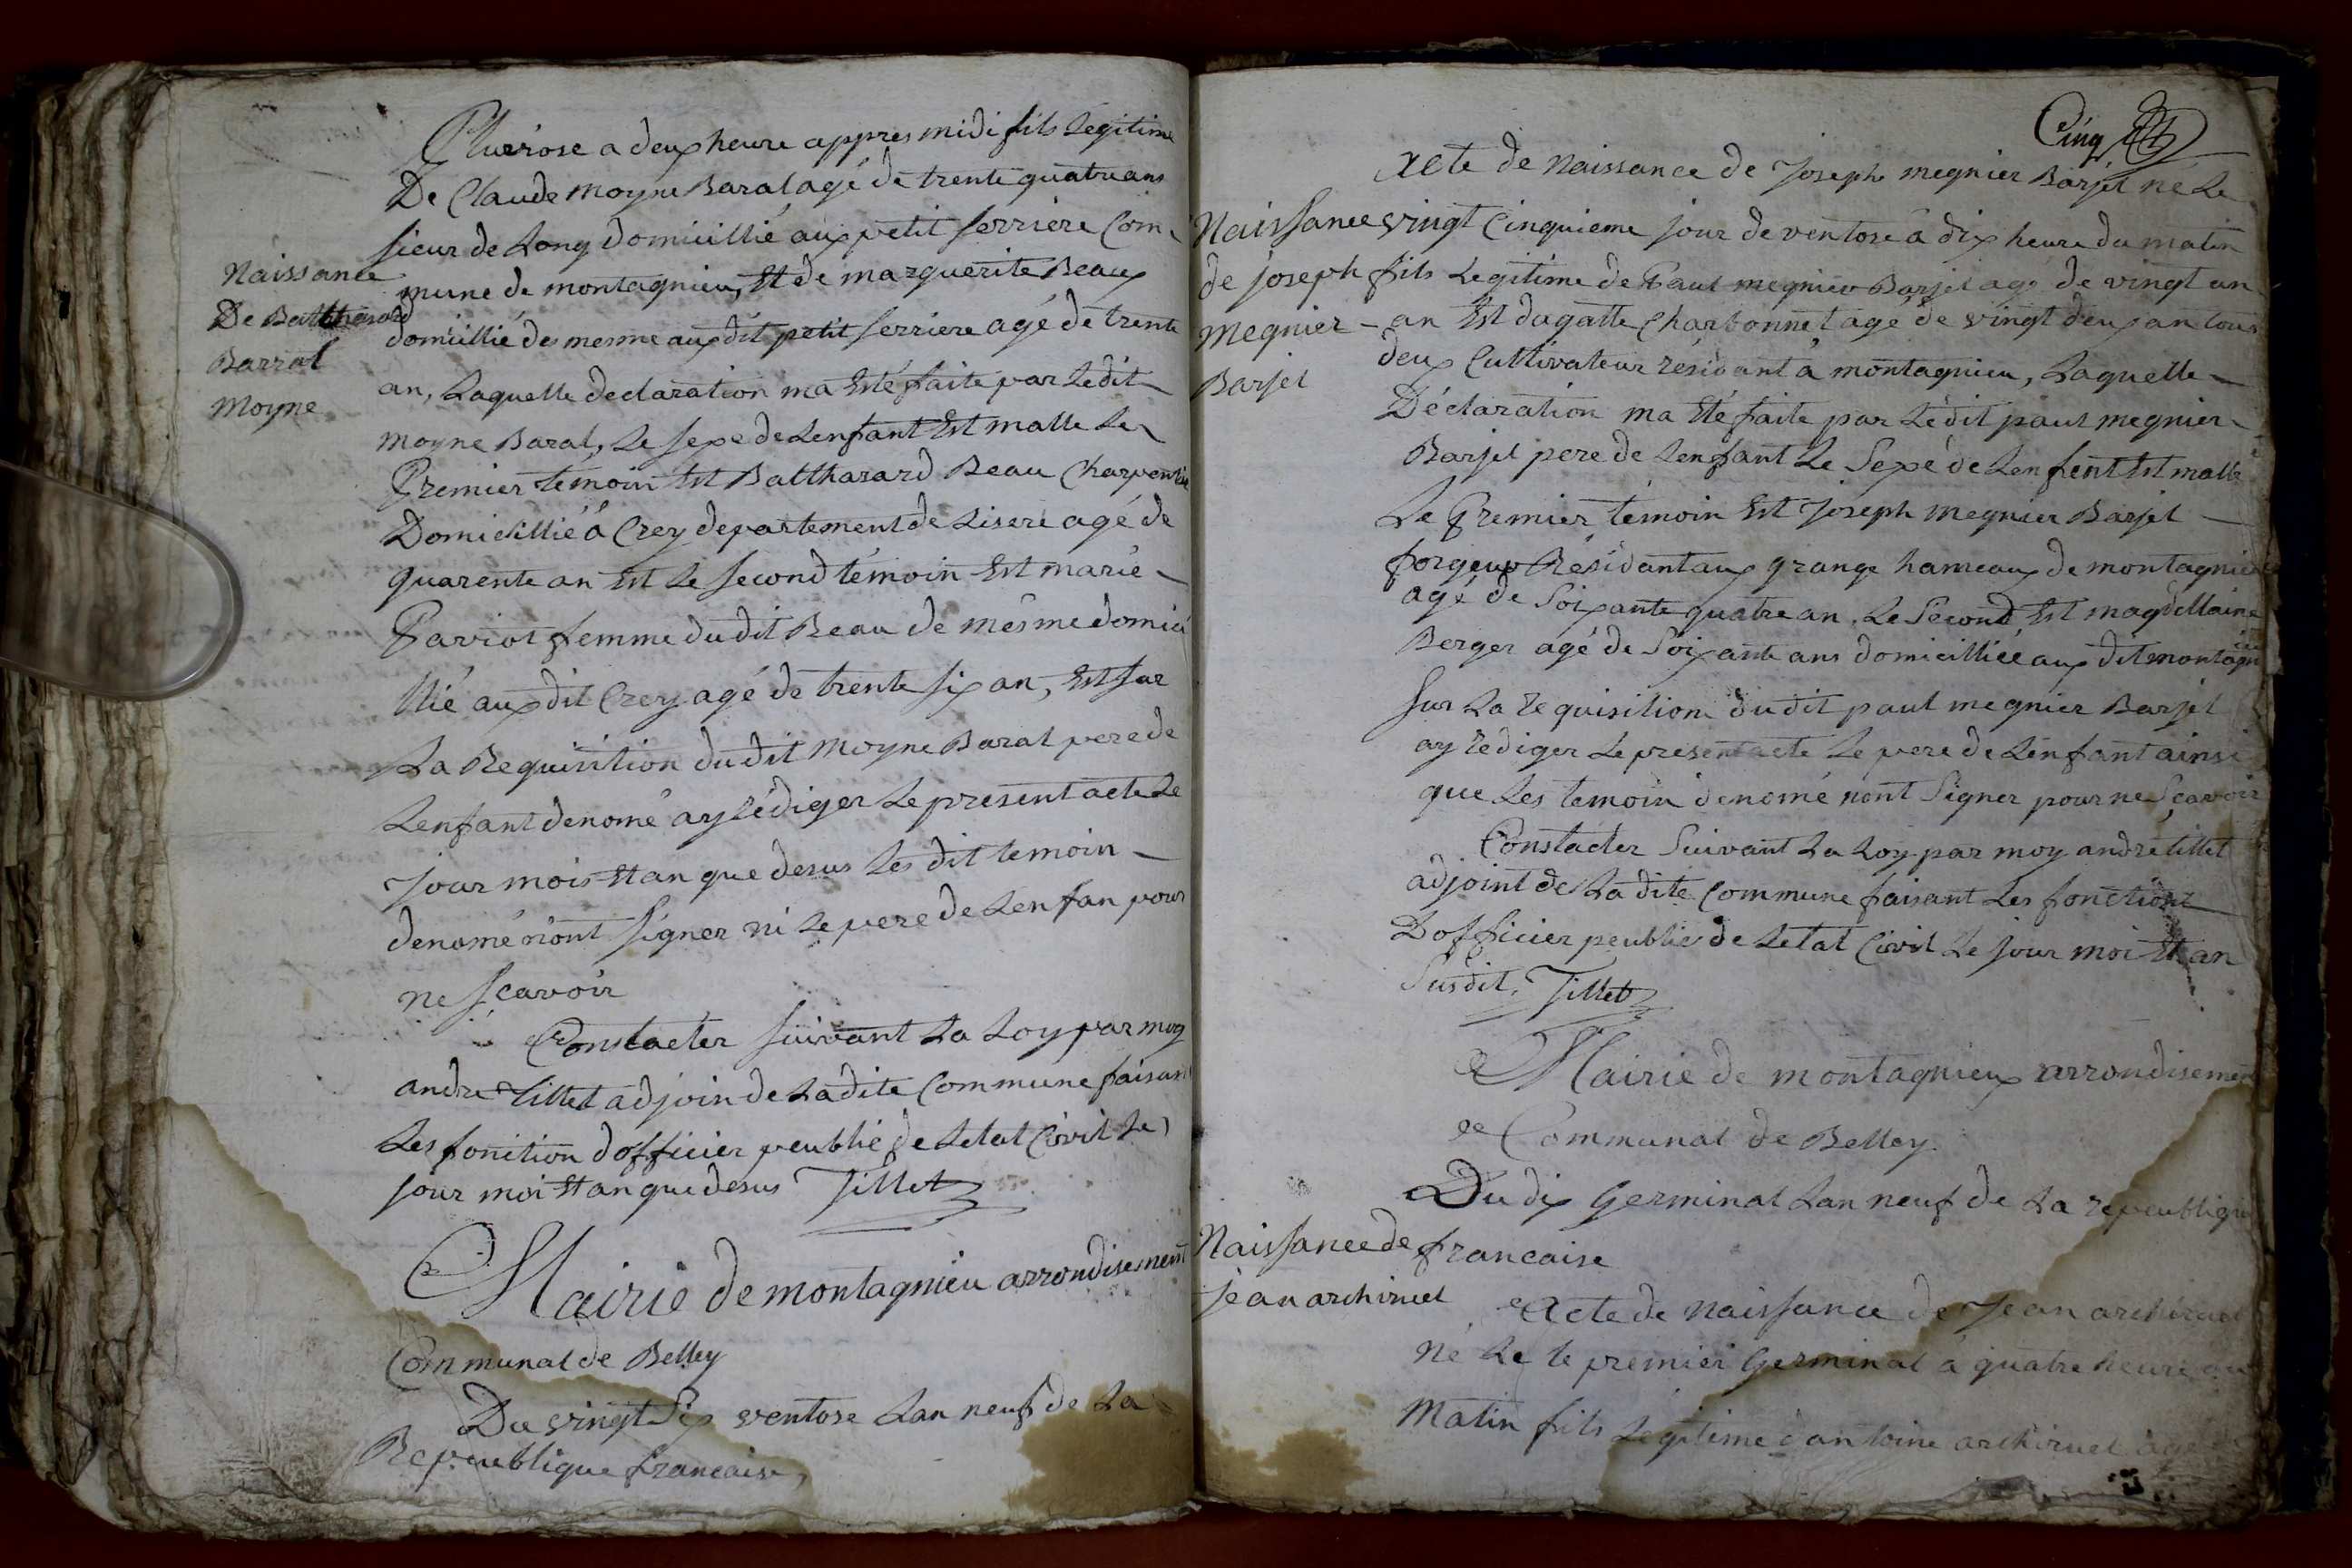 Naissance
De Balthasard
Barral
Moyne
Pluviose a deux heure appres midi fils Legitime
De Claude Moyne Baral agé de trente quatre ans
sieur de Long domicillié aux petit serriere Com
mune de montagnieu, Et de marguerite Beaux
domicillié de mesme aux dit petit serriere agé de trente
an, Laquelle declaration ma Eté faite par Ledit
moyne Baral, Le sexe de Lenfant Est malle Le
Premier temoin Est Balthazard Beau Charpentie
Domicillié à Crey departement de Lisere agé de
quarente an Est Le second témoin Est marie
Paviot femme dudit Beau de mésme domici
llié aux dit Crey agé de trente six an, Est sur
La Requisition dudit Moyne Baral pere de
Lenfant denomé ay rédiger Le present acte Le
jour mois Et an que desus Les dit temoin
denomé n'ont signer ni Le pere de Lenfan pour
ne sçavoir
Constacter suivant La Loy par moy
andre Tillet adjoin de Ladite Commune faisant
Les fonction d'officier peublic de Letat Civil Le
jour moi Et an que desus Tillet
Mairie de montagnieu arrondisement
Communal de Belley
Du vingt six ventose Lan neuf de La
Republique francaise,
Cinq
Naissance
de joseph
Megnier
Barjel
Acte de Naissance de Joseph megnier Barjel né Le
vingt Cinquieme jour de ventose à dix heure du matin
fils Legitime de Paul megnier Barjel agé de vingt un
an Est dagatte Charbonnet agé de vingt deux an tous
deux Cultivateur residant à montagnieu, Laquelle
Déclaration ma Eté faite par Ledit paul megnier
Barjel pere de Lenfant Le Sexe de Lenfent Est malle
Le Premier temoin Est Joseph megnier Barjel
forgeur Résidant aux grange hameaux de montagnieu
agé de Soixante quatre an, Le Second Est magdellaine
Berger agé de Soixante ans domicilliée aux dit montagnieu
Sur La requisition dudit paul megnier Barjel
ay rediger Le present acte Le pere de Lenfant ainsi
que Les temoin denomé nont Signer pour ne Sçavoir
Constacter Suivant La Loy par moy andre tillet
adjoint de La dite Commune faisant Les fonctiont
Dofficier peublic de Letat Civil Le jour moi Et an
Susdit, Tillet
Mairie de montagnieux arrondisement
Communal de Belley
Du dix Germinal Lan neuf de La republique
francaise
Naissance de
jean archiruel
Acte de Naissance de Jean archiruel
Né Le le premier Germinal à quatre heure du
Matin fils Legitime dantoine archiruel agé